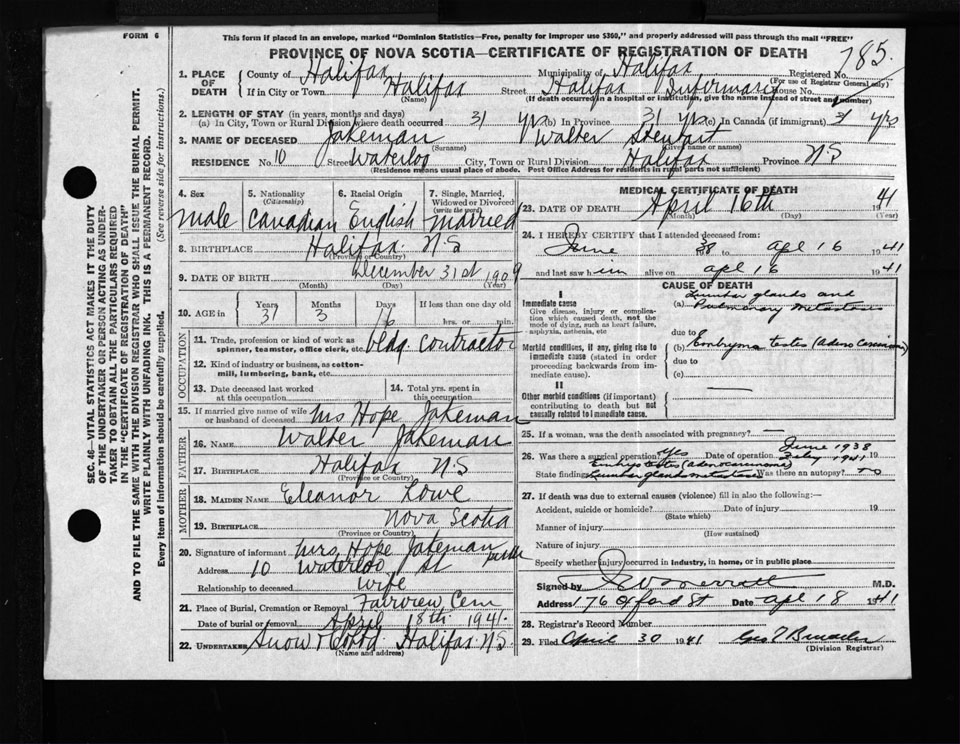 FORM 6
This form if placed in an envelope, marked "Dominion Statistics—Free, penalty for improper use $300," and properly addressed will pass through the mail "FREE"
PROVINCE OF NOVA SCOTIA—CERTIFICATE OF REGISTRATION OF DEATH
785
1. PLACE OF DEATH
County of Halifax Municipality of Halifax Registered No.
(For use of Registrar General only)
If in City or Town Halifax Street Halifax Infirmary House No.
(Name) (If death occurred in a hospital or institution, give the name instead of street and number)
2. LENGTH OF STAY (in years, months and days)
(a) In City, Town or Rural Division where death occurred 31 yrs (b) In Province 31 yrs (c) In Canada (if immigrant) 31 yrs
3. NAME OF DECEASED Jakeman Walter Stewart
(Surname) (Given name or names)
RESIDENCE No. 10 Street Waterloo City, Town or Rural Division Halifax Province N S
(Residence means usual place of abode. Post Office Address for residents in rural parts not sufficient)
SEC. 46—VITAL STATISTICS ACT MAKES IT THE DUTY
OF THE UNDERTAKER OR PERSON ACTING AS UNDER-
TAKER TO OBTAIN ALL THE PARTICULARS REQUIRED
IN THE "CERTIFICATE OF REGISTRATION OF DEATH"
AND TO FILE THE SAME WITH THE DIVISION REGISTRAR WHO SHALL ISSUE THE BURIAL PERMIT.
WRITE PLAINLY WITH UNFADING INK. THIS IS A PERMANENT RECORD.
Every item of information should be carefully supplied. (See reverse side for instructions.)
4. Sex 5. Nationality (Citizenship) 6. Racial Origin 7. Single, Married, Widowed or Divorced (write the word)
male Canadian English married
8. BIRTHPLACE Halifax N S
(Province or Country)
9. DATE OF BIRTH December 31st 1909
(Month) (Day) (Year)
10. AGE in Years Months Days If less than one day old
3 16 hrs. or min.
OCCUPATION
11. Trade, profession or kind of work as spinner, teamster, office clerk, etc. bldg. contractor
12. Kind of industry or business, as cotton-mill, lumbering, bank, etc.
13. Date deceased last worked at this occupation
14. Total yrs. spent in this occupation
15. If married give name of wife or husband of deceased. Mrs Hope Jakeman
FATHER
16. NAME Walter Jakeman
17. BIRTHPLACE Halifax N S
(Province or Country)
MOTHER
18. MAIDEN NAME Eleanor Lowe
19. BIRTHPLACE Nova Scotia
(Province or Country)
20. Signature of informant Mrs. Hope Jakeman
Address 10 Waterloo St
Relationship to deceased wife
21. Place of Burial, Cremation or Removal Fairview Cem
Date of burial or removal April 18th 1941
22. UNDERTAKER Snow & Co Halifax N S
(Name and address)
MEDICAL CERTIFICATE OF DEATH
23. DATE OF DEATH April 16th 41
(Month) (Day) (Year)
24. I HEREBY CERTIFY that I attended deceased from:
June 38 to Apl 16 1941
and last saw him alive on Apl 16 1941
CAUSE OF DEATH
I
Immediate cause
Give disease, injury or complication which caused death, not the mode of dying, such as heart failure, asphyxia, asthenia, etc
(a) Lumbar glands and Pulmonary metastasis
due to
Morbid conditions, if any, giving rise to immediate cause (stated in order proceeding backwards from immediate cause).
(b) Embryoma testes (adeno carcinoma)
due to
(c)
II
Other morbid conditions (if important) contributing to death but not causally related to immediate cause.
25. If a woman, was the death associated with pregnancy? —
26. Was there a surgical operation? Yes Date of operation June 1938 July 1941 19
State findings Embryo testes (adenocarcinoma) Lumbar glands metastasis Was there an autopsy? no
27. If death was due to external causes (violence) fill in also the following:—
Accident, suicide or homicide? Date of injury 19
(State which)
Manner of injury
(How sustained)
Nature of injury
Specify whether injury occurred in industry, in home, or in public place
Signed by M.D.
Address 176 Oxford St Date Apl 18 1941
28. Registrar's Record Number
29. Filed April 30 1941
(Division Registrar)